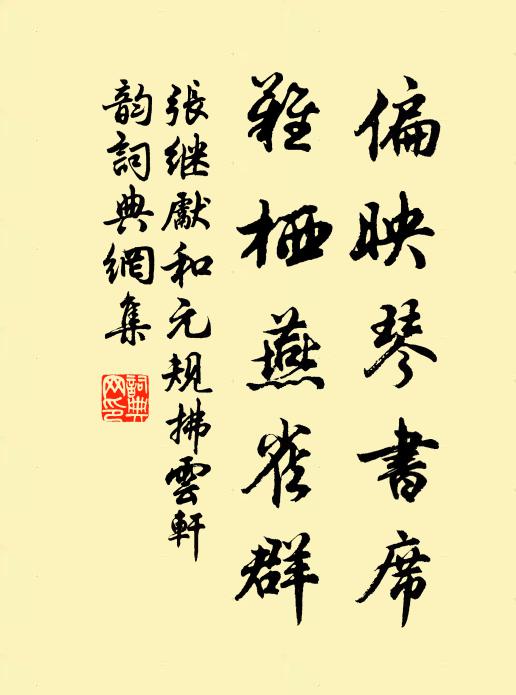 偏映琴書席
難栖燕雀群
張继獻和元規拂雲軒
韵詞典網集
詞典
网印